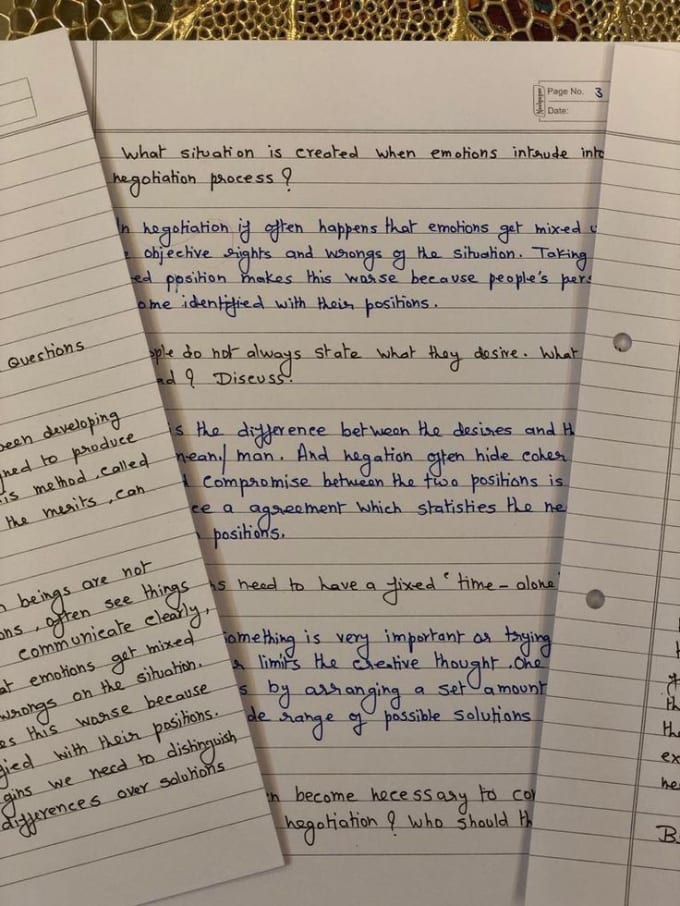 Page No. 3
Date:
What situation is created when emotions intrude into
negotiation process ?
In negotiation if often happens that emotions get mixed
objective rights and wrongs of the situation. Taking
ed position makes this worse because people's pers
ome identified with their positions.
ople do not always state what they desire. What
ad ? Discuss.
is the difference between the desires and th
mean/ man. And hegation often hide coher
compromise between the two positions is
ce a agreement which statisties the ne
positions.
ns need to have a fixed 'time - alone'
something is very important or trying
r limits the creative thought. One
s by arranging a set amount
de range of possible solutions
n become hecessary to con
hegotiation ? who should th
Questions
been developing
ned to produce
is method, called
the merits, can
n beings are not
ons, often see things
communicate clearly,
at emotions get mixed
wrongs on the situation.
es this worse because
fied with their positions.
gins we need to distinguish
differences over solutions
th
the
ex
he
B